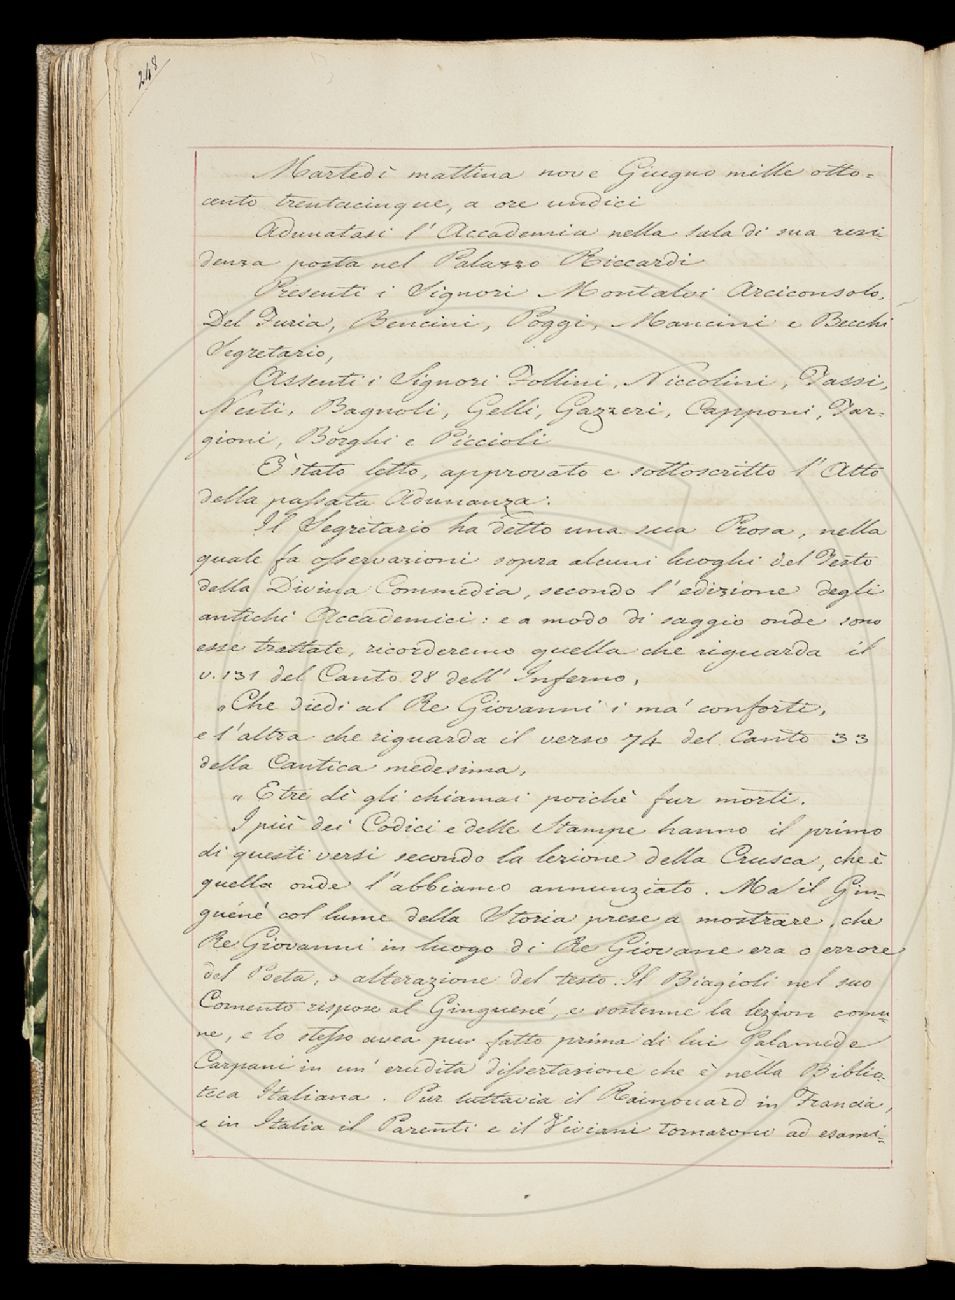 248
Martedì mattina nove Giugno mille otto=
cento trentacinque, a ore undici
Adunatasi l'Accademia nella sala di sua resi-
denza posta nel Palazzo Riccardi
Presenti i Signori Montalvi Arciconsolo,
Del Furia, Bencini, Poggi, Mancini e Becchi
Segretario,
Assenti i Signori Follini, Niccolini, Tassi,
Nesti, Bagnoli, Gelli, Gazzeri, Capponi, Tar-
gioni, Borghi e Piccioli
È stato letto, approvato e sottoscritto l'Atto
della passata Adunanza.
Il Segretario ha detto una sua Prosa, nella
quale fa osservazioni sopra alcuni luoghi del Testo
della Divina Commedia, secondo l'edizione degli
antichi Accademici: e a modo di saggio onde sono
esse trattate, ricorderemo quella che riguarda il
v. 131 del Canto 28 dell'Inferno,
„ Che diedi al Re Giovanni i ma' conforti,
e l'altra che riguarda il verso 74 del Canto 33
della Cantica medesima,
„ E tre dì gli chiamai poichè fur morti.
I più dei Codici e delle Stampe hanno il primo
di questi versi secondo la lezione della Crusca, che è
quella onde l'abbiamo annunziato. Ma il Gin-
guéné col lume della Storia prese a mostrare, che
Re Giovanni in luogo di Re Giovane era o errore
del Poeta, o alterazione del testo. Il Biagioli nel suo
Comento rispose al Ginguené, e sostenne la lezion comu-
ne, e lo stesso avea pur fatto prima di lui Palamede
Carpani in un' erudita dissertazione che è nella Biblio-
teca Italiana. Pur tuttavia il Rainouard in Francia,
e in Italia il Parenti e il Viviani tornarono ad esami-